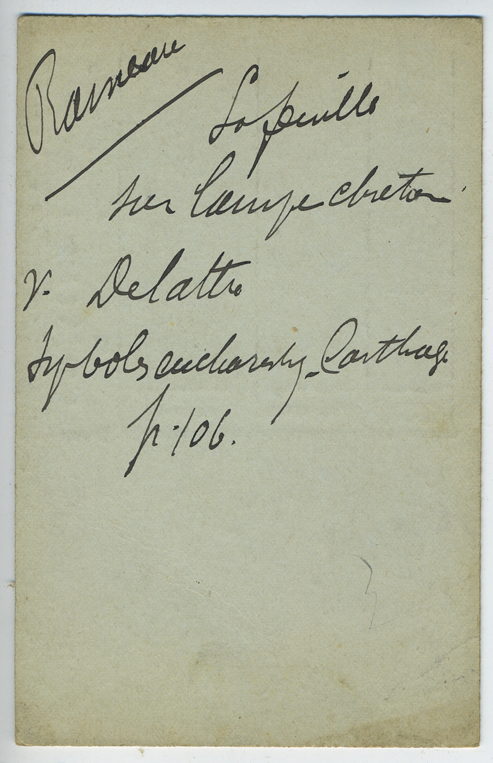 Rameau
La feuille
sur lampe chretien
V. Delattre
Symboles eucharisty. Carthage
p. 106.